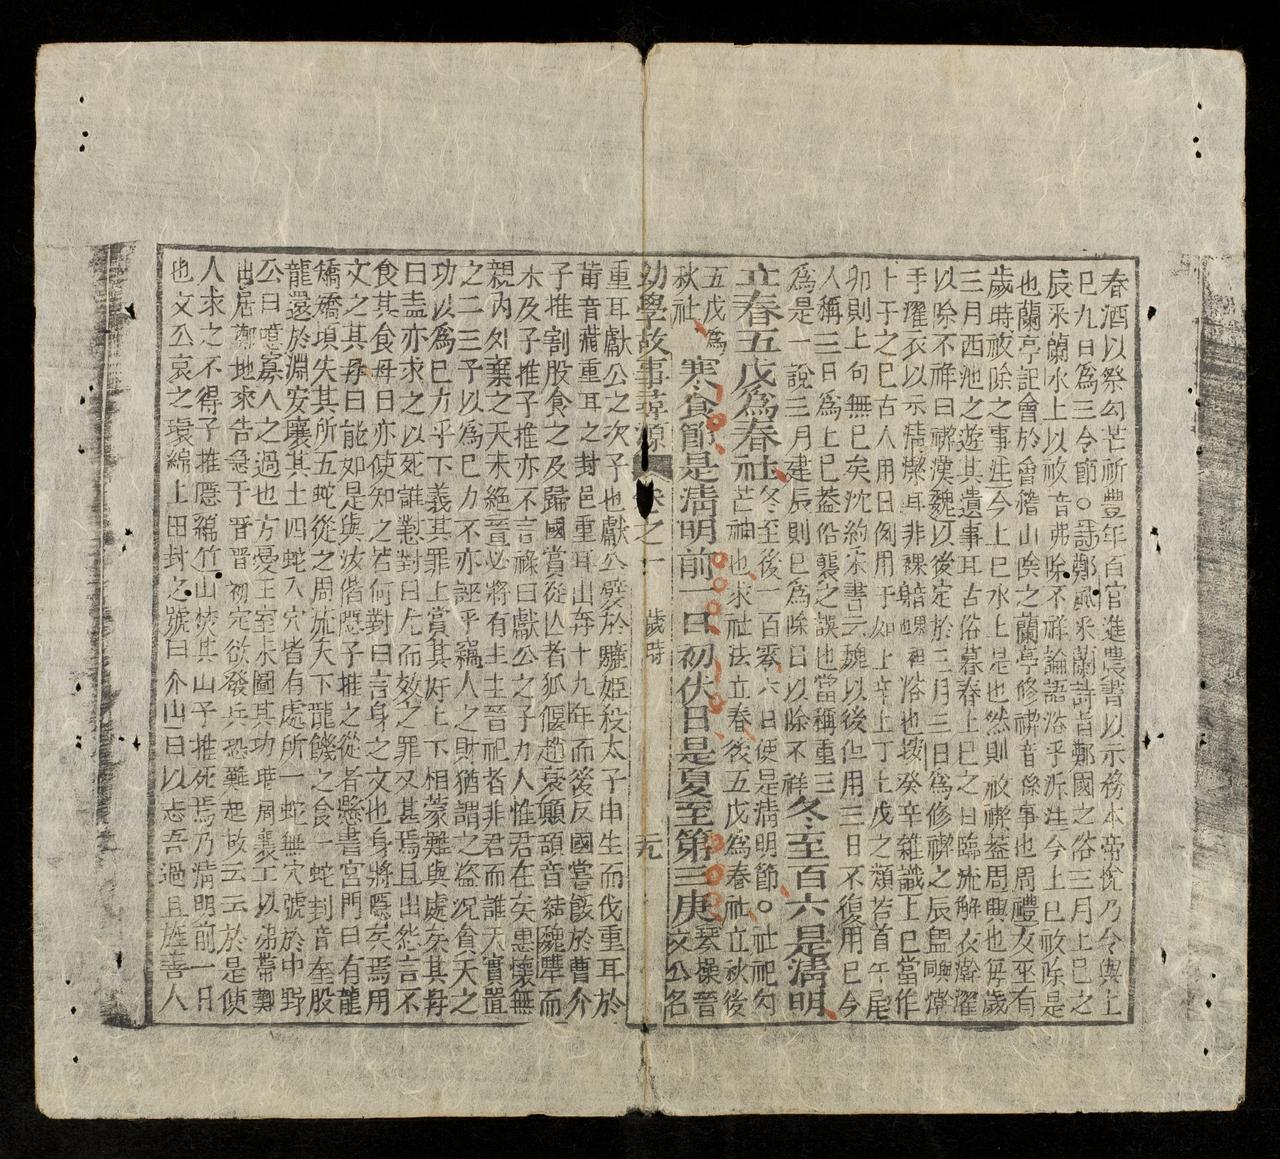 春酒以祭勾芒祈豐年百官進農書以示務本帝悅乃令與上
巳九日為三令節○詩鄭風采蘭詩皆鄭國之俗三月上巳之
辰采蘭水上以祓音弗除不祥論語浴乎沂注今上巳祓除是
也蘭亭記會於會稽山陰之蘭亭修禊音係事也周禮女巫有
歲時祓除之事注今上巳水上是也然則祓禊蓋周典也每歲
三月西池之遊其遺事耳古俗暮春上巳之日臨流解衣澣濯
以除不祥曰禊漢魏以後定於三月三日為修禊之辰盥頮濯
手濯衣以示清潔耳非祼體裸袒浴也按癸辛雜識上巳當作
十干之巳古人用日例用于如上辛上丁上戊之類若首午尾
卯則上旬無巳矣沈約宋書云魏以後但用三日不復用巳今
人稱三日為上巳蓋俗襲之誤也當稱重三
為是一說三月建辰則巳為除日以除不祥冬至百六是清明
立春五戊為春社冬至後一百零六日便是清明節○社祀勾
芒神也求社法立春後五戊為春社立秋後
五戊為
秋社寒食節是清明前一日初伏日是夏至第三庚琴操晉
文公名
幼學故事尋源 卷之一 歲時 元
重耳獻公之次子也獻公嬖於驪姬殺太子申生而伐重耳於
莆音藏重耳之封邑重耳出奔十九年而後反國嘗餒於曹介
子推割股食之及歸國賞從亡者狐偃趙衰顛頡音結魏犨而
不及子推子推亦不言祿曰獻公之子九人惟君在矣惠懷無
親內外棄之天未絕晉必將有主主晉祀者非君而誰天實置
之二三子以為己力不亦誣乎竊人之財猶謂之盜況貪天之
功以為己力乎下義其罪上賞其奸上下相蒙難與處矣其母
曰盍亦求之以死誰懟對曰尤而效之罪又甚焉且出怨言不
食其食母曰亦使知之若何對曰言身之文也身將隱矣焉用
文之其母曰能如是與汝偕隱子推之從者懸書宮門曰有龍
矯矯頃失其所五蛇從之周流天下龍饑之食一蛇刲音奎股
龍還於淵安壤其土四蛇入穴皆有處所一蛇無穴號於中野
公曰噫寡人之過也方憂王室未圖其功時周襄王以弟帶難
出居鄭地來告急于晉晉初定欲發兵恐難起故云云於是使
人求之不得子推隱綿竹山焚其山子推死焉乃清明前一日
也文公哀之環綿上田封之號曰介山曰以志吾過且旌善人